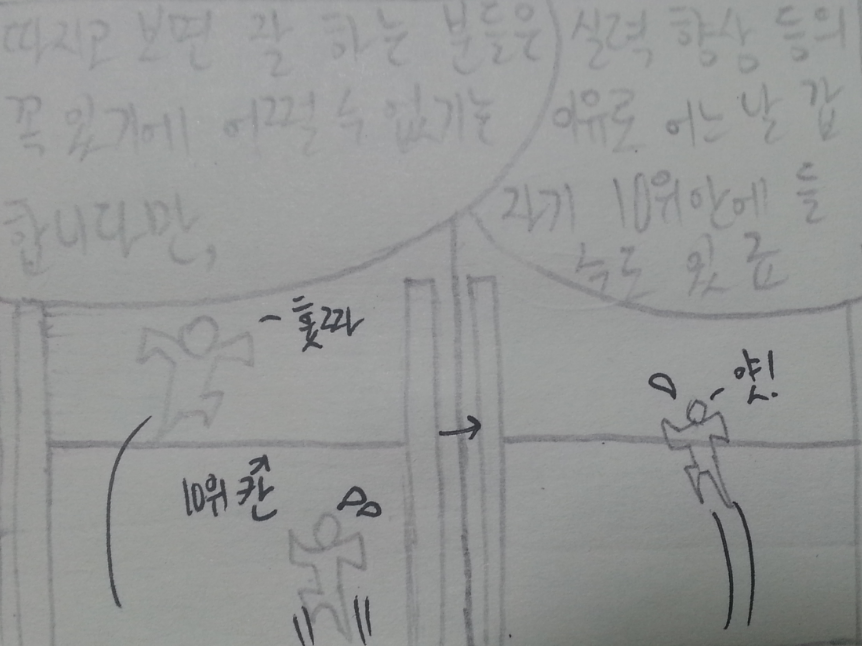 따지고 보면 잘 하는 분들은
꼭 있기에 어쩔 수 없기는
합니다만,
10위 칸
실력 향상 등의
이유로 어느 날 갑
자기 10위 안에 들
수도 있고
얏!